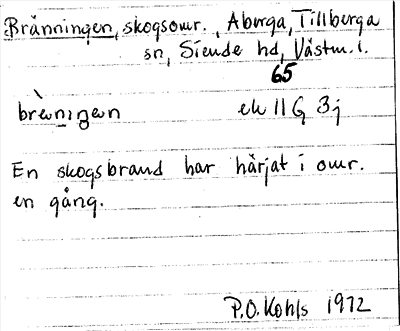 Bränningen, skogsomr., Aberga, Tillberga
sn, Siende hd, Västm. l.
65
brèningen ek 11 G 3j
En skogsbrand har härjat i omr.
en gång.
P.O. Kohls 1972